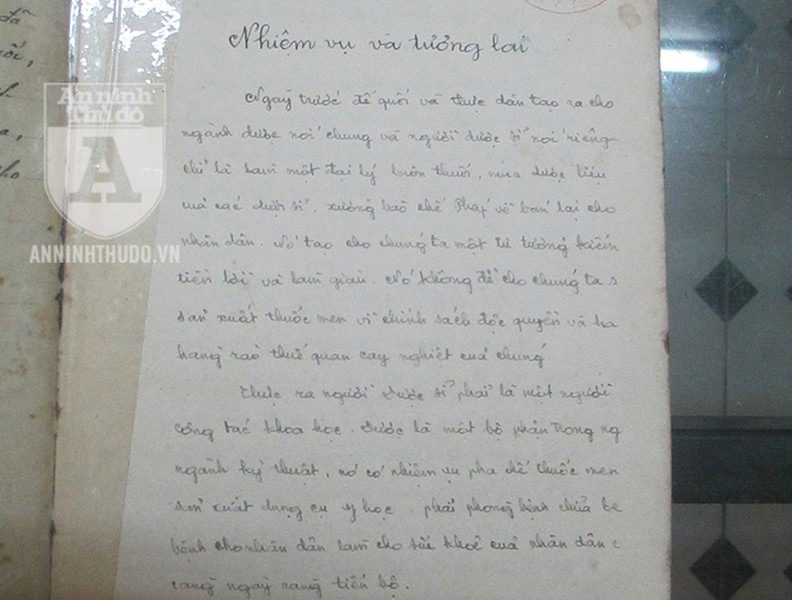 Nhiệm vụ và tưởng lai
Ngaỳ trước đế quốí và thực dân tạo ra cho
ngành dược noí chung và người dược sĩ noí riêng
chỉ là lam̀ một đại lý buôn thuốć, mua dược liệu
cuả các dược sĩ, xưởng baò chế Pháp về bań lại cho
nhân dân. Nó tạo cho chung ta một tư tưởng kiếm
tiền lời và lam̀ giaù. Nó không để cho chúng ta s
sản xuất thuốc men vì chính sách độc quyền và ha
hang̀ raò thuế quan cay nghiệt cuả chúng
Thực ra người dược sĩ phaỉ là một người
công tác khoa học. Dược là một bộ phận trong ng
ngành kỹ thuật, nó có nhiệm vụ pha chế thuốc men
sản xuất dụng cụ y học phaỉ phong̀ bệnh chữa bệ
bệnh cho nhân dân lam̀ cho sức khoẻ cuả nhân dân c
cang̀ ngaỳ cang̀ tiến bộ.
An ninh
Thủ đô
A
ANNINHTHUDO.VN
đã